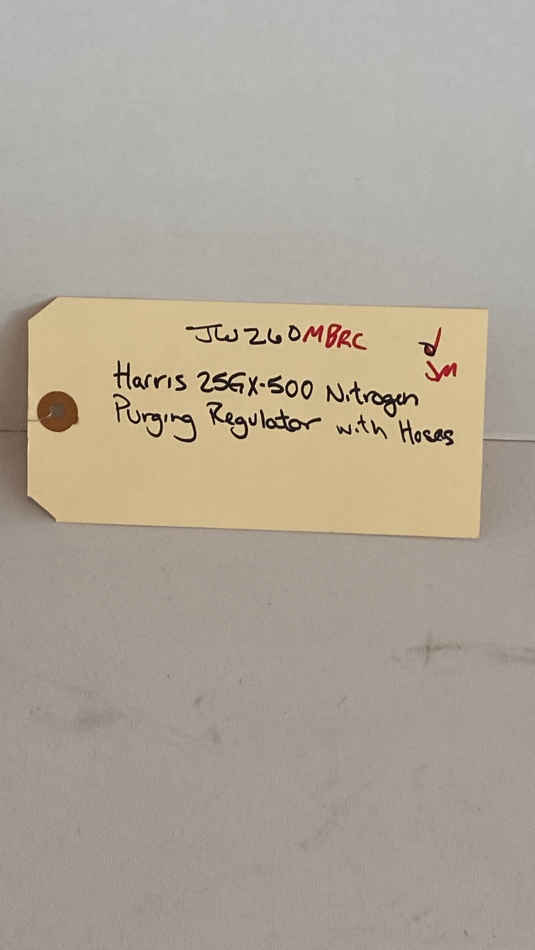 JW260MBRC d
JM
Harris 25GX-500 Nitrogen
Purging Regulator with Hoses